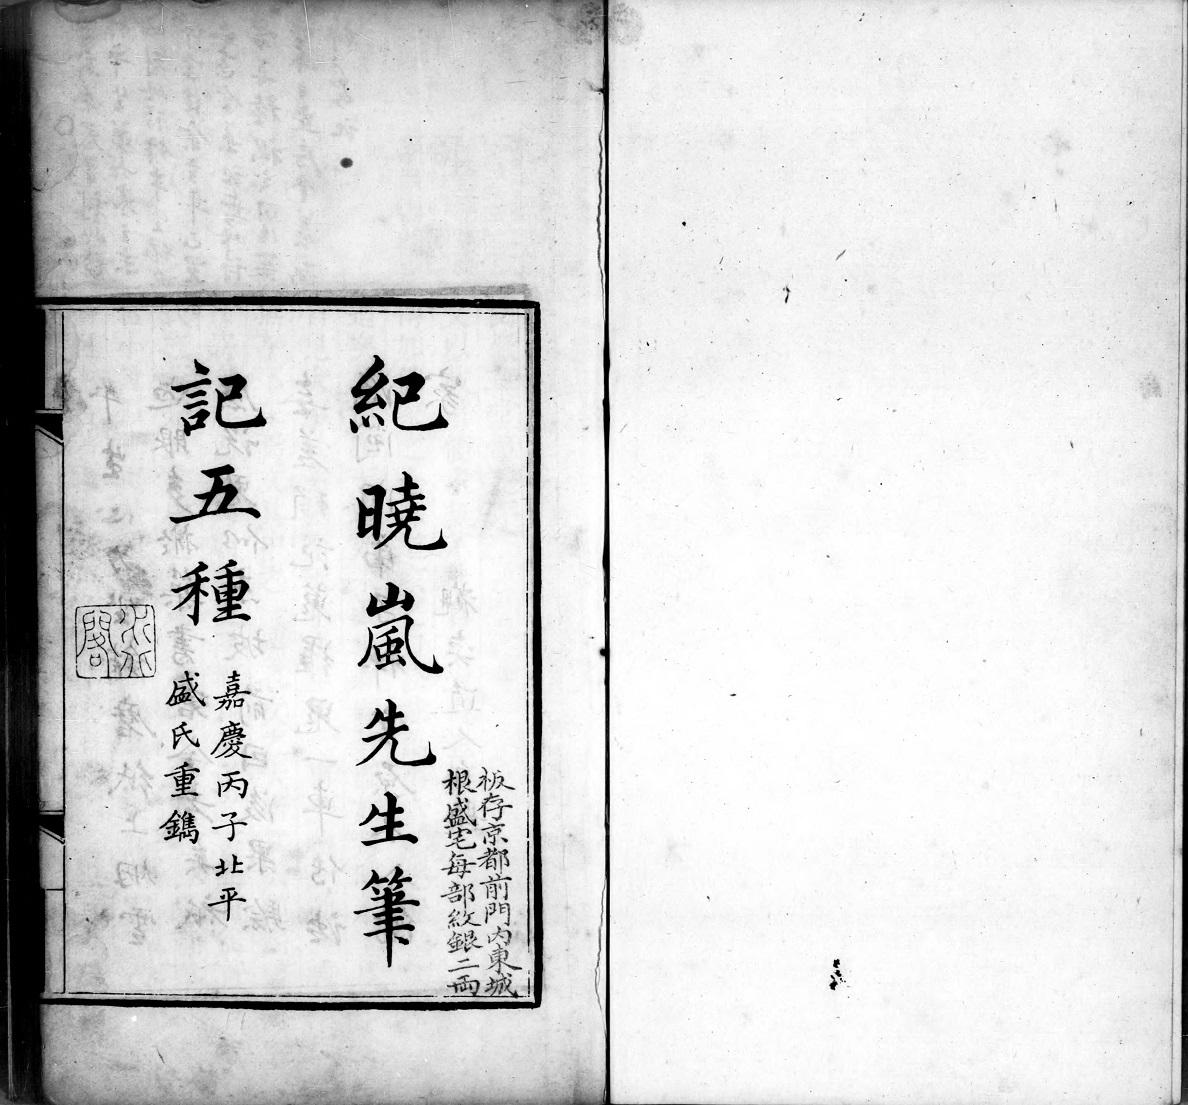 板存京都前門內東城
根盛宅每部紋銀二両
紀曉嵐先生筆
記五種
嘉慶丙子北平
盛氏重鐫